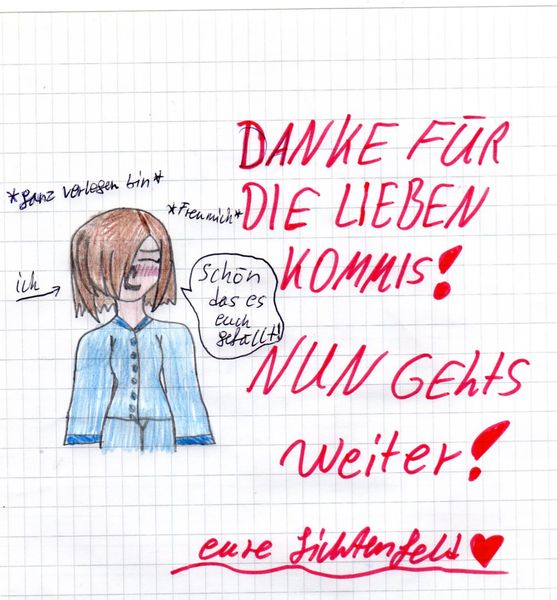 DANKE FÜR
DIE LIEBEN
KOMMIS!
*ganz verlegen bin*
*Freu mich*
ich
schön
das es
euch
gefällt!
NUN GEhts
weiter!
eure Lichtenfeld